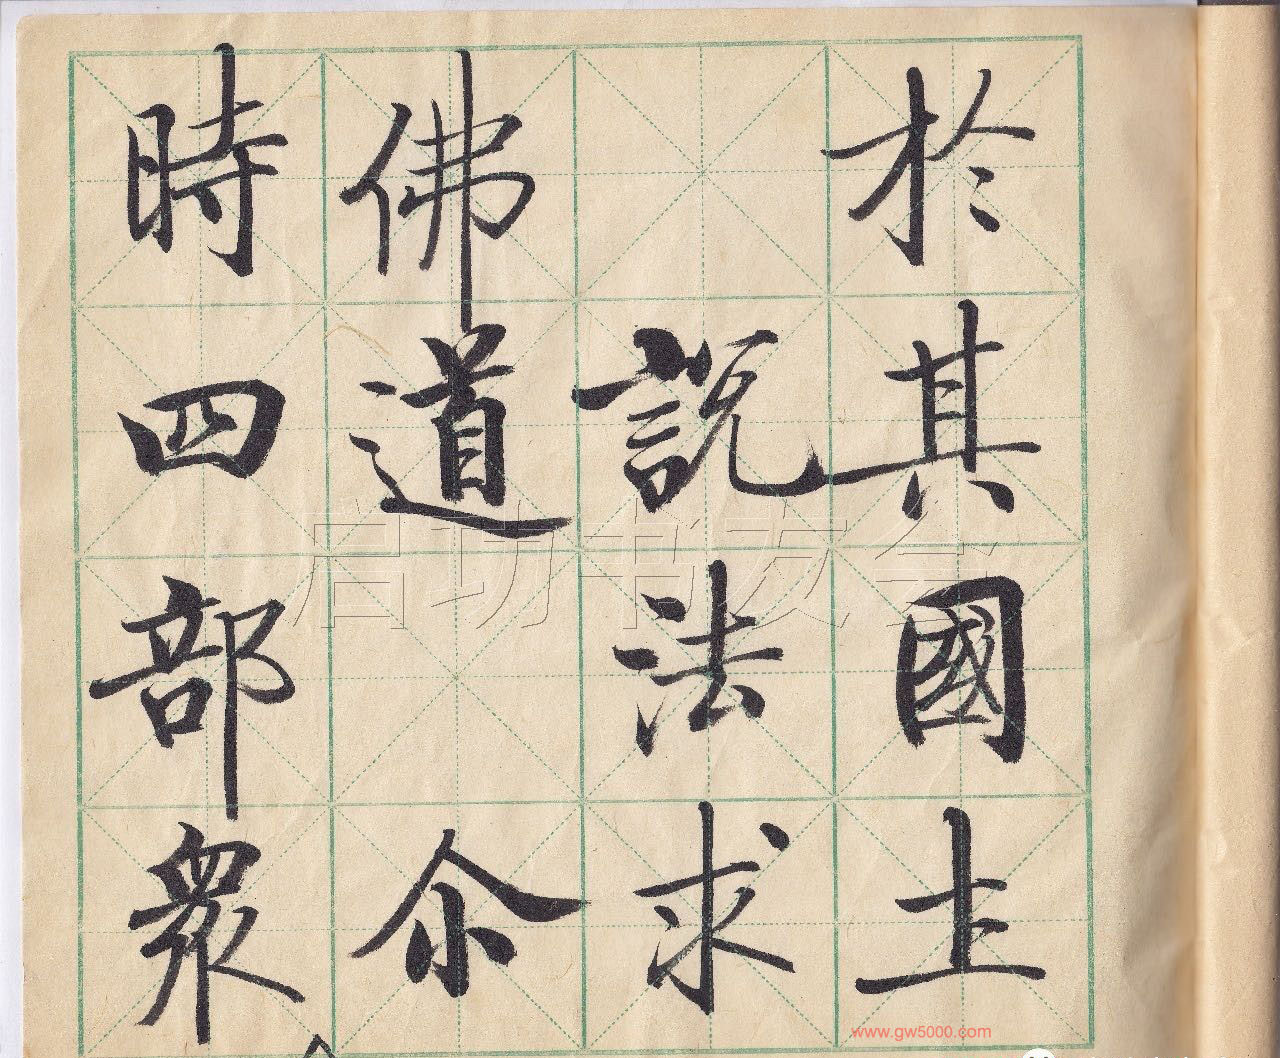 於其國土
說法求
佛道尒
時四部衆
启功书友会
www.gw5000.com